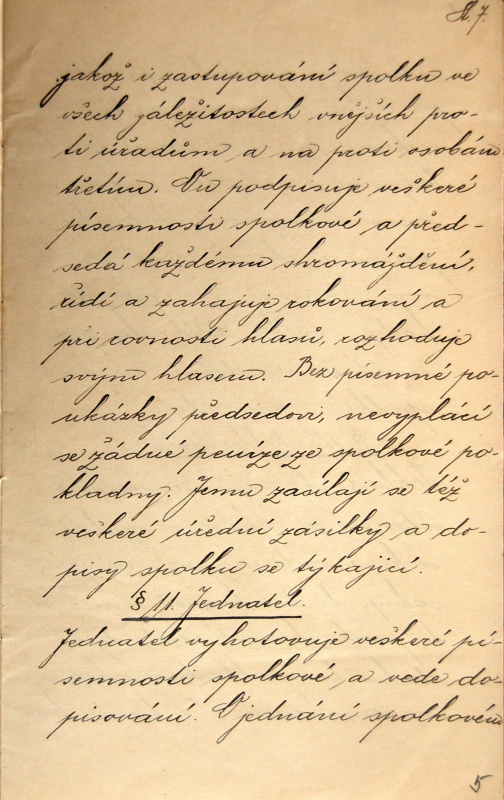 A. 7.
jakož i zastupování spolku ve
všech záležitostech vnějších pro-
ti úřadům a na proti osobám
třetím. On podpisuje veškeré
písemnosti spolkové a před-
sedá každému shromáždění,
řídí a zahajuje rokování a
při rovnosti hlasů, rozhoduje
svým hlasem. Bez písemné po-
ukázky předsedovi, nevyplácí
se žádné peníze ze spolkové po-
kladny. Jemu zasílají se též
veškeré úřední zásilky a do-
pisy spolku se týkající.
§ 11. Jednatel.
Jednatel vyhotovuje veškeré pí-
semnosti spolkové a vede do-
pisování. O jednání spolkovém
5